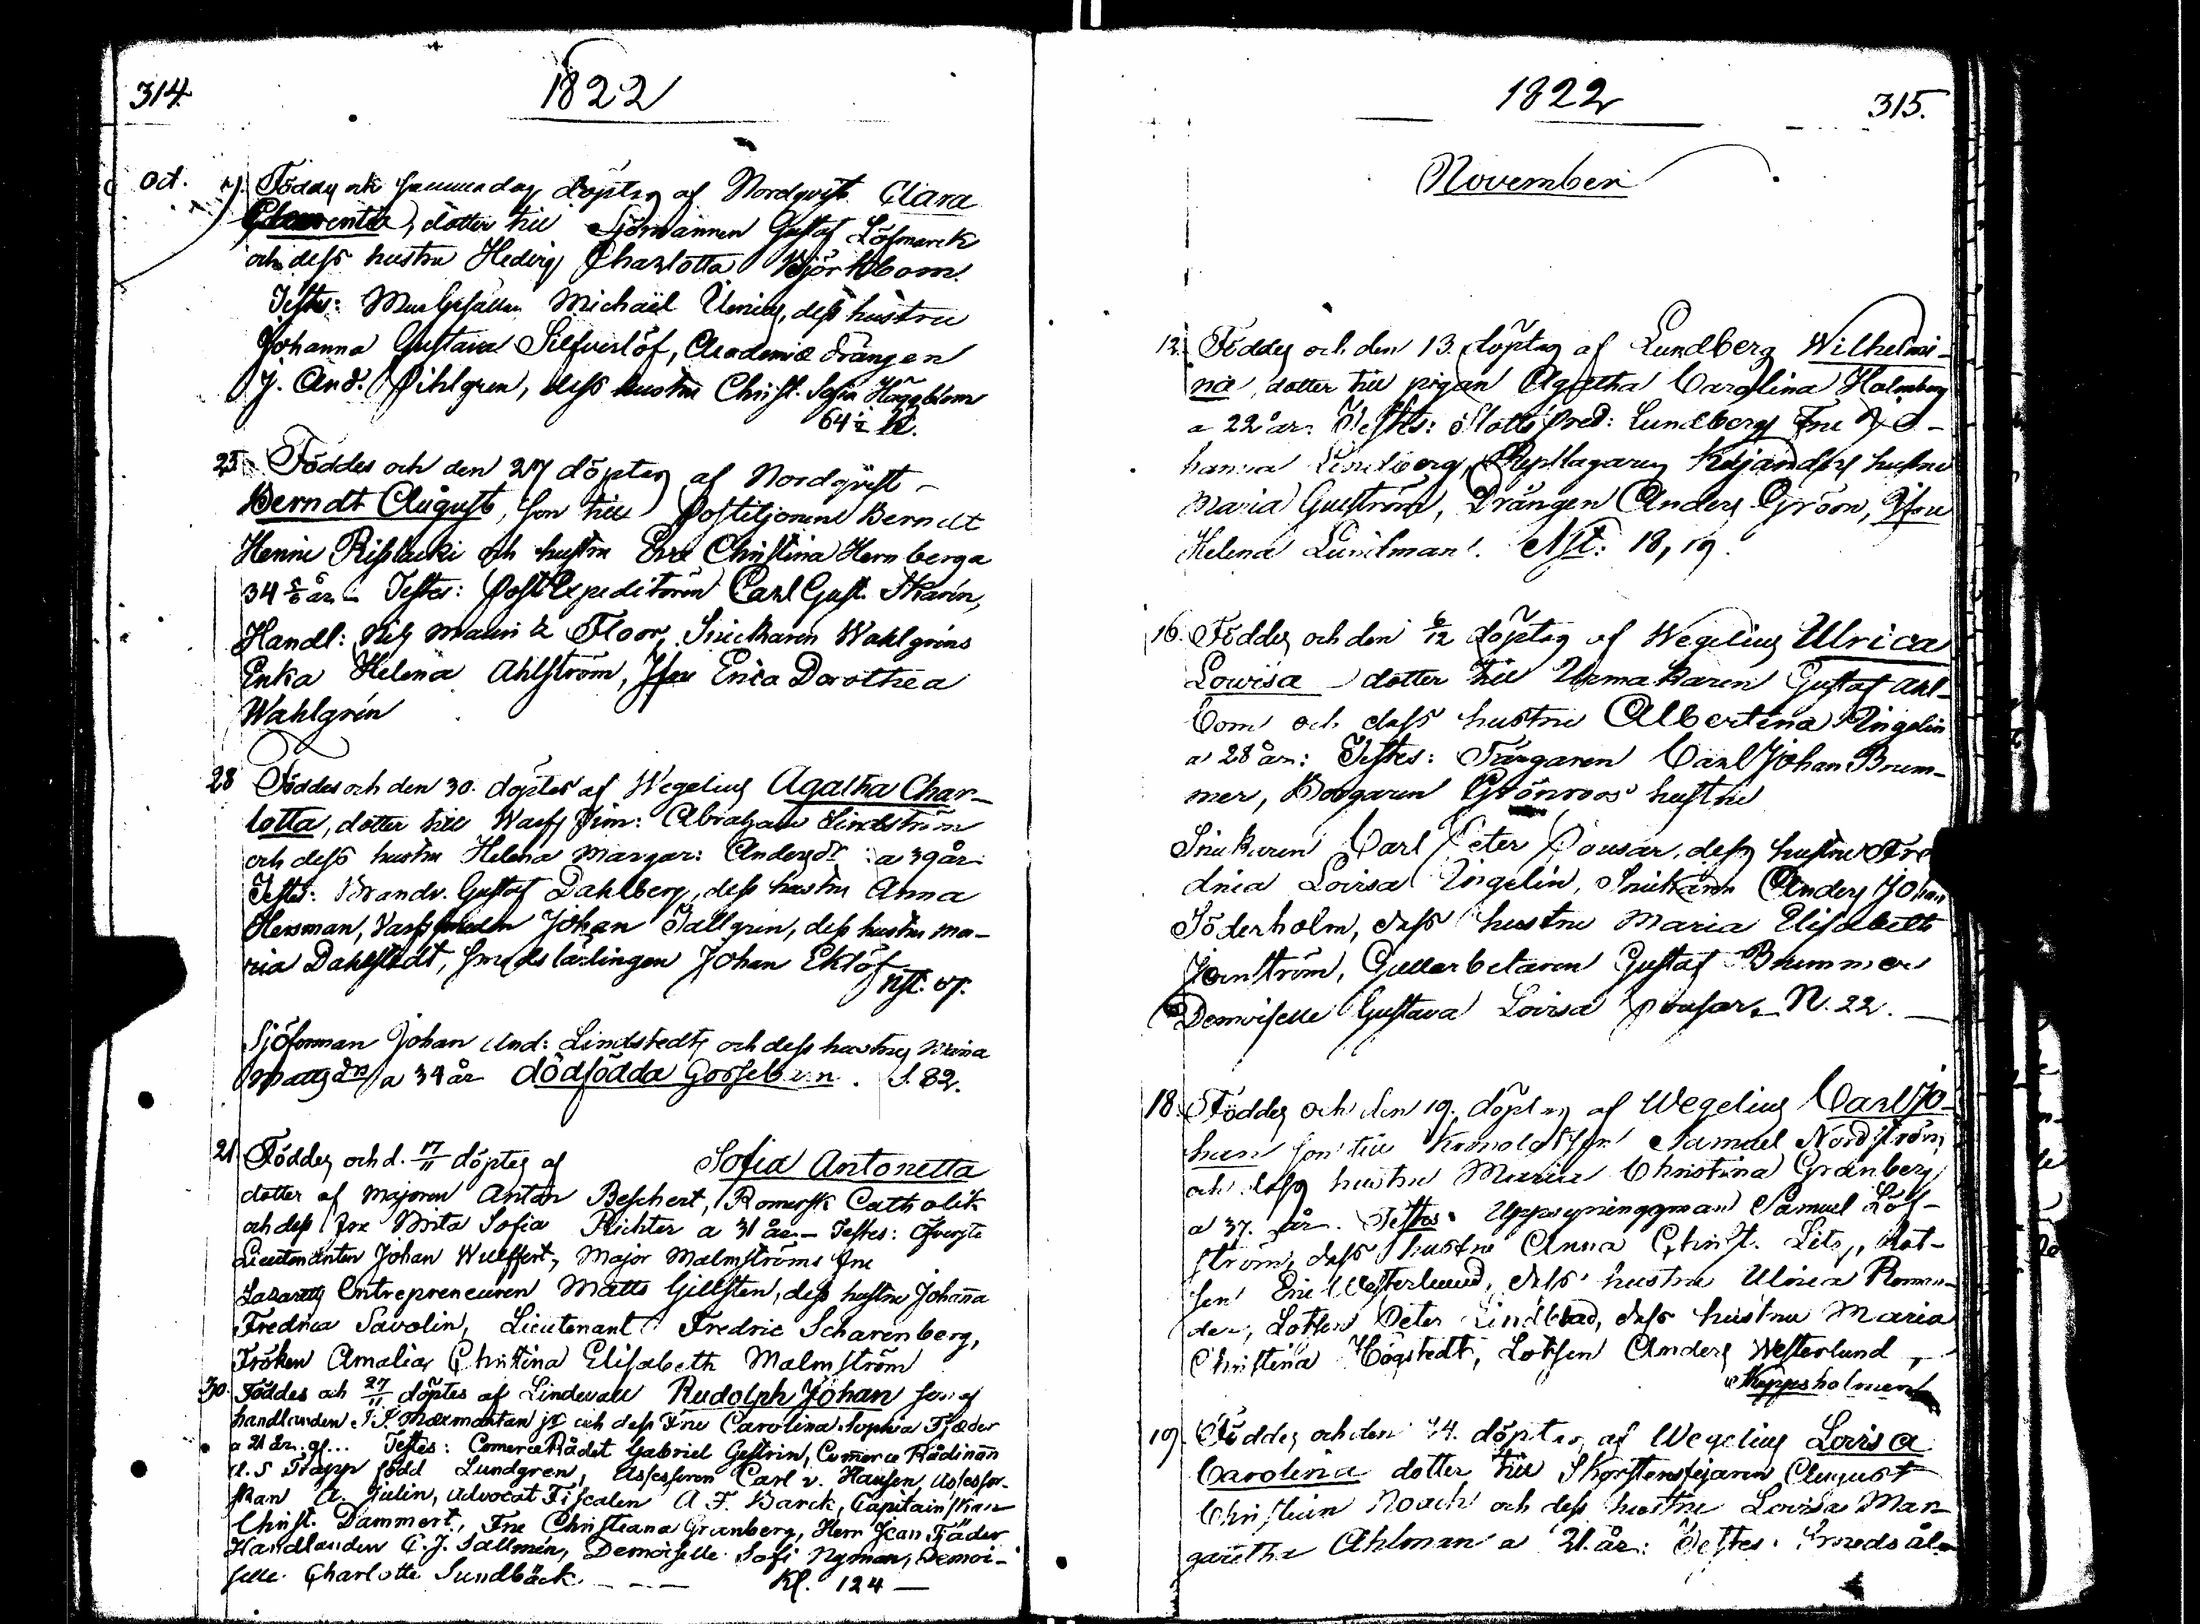 314.
1822
Oct.
Föddes och samma dag döptes af Nordqvist Clara
dotter till Sjömannen Gustaf Löfmarck
och dess hustru Hedvig Charlotta Björkbom.
Testes: Mur Gesällen Michaël dess hustru
Johanna Gustava Silfverlöf, Academiæ drängen
J. And. Pihlgren, dess hustru Christ. Sofia Häggblom
64½
25. Föddes och den 27 döptes af Nordqvist
Berndt August, son till Postiljonen Berndt
och hustru Eva Christina Hernberg a
34 år. Testes: PostExpeditören Carl Gust.
Handl: Nils & Floor, Snickaren Wahlgréns
Enka Helena Ahlström, Jfru Erica Dorothea
Wahlgrén
28 Föddes och den 30. döptes af Wegelius Agatha Char-
lotta, dotter till Warfs Tim: Abraham Lindström
och dess hustru Helena Margar: Andersdr a 39 år
Testes: Brandv. Gustaf Dahlberg, dess hustru Anna
Hersman, Johan Tallgren, dess hustru Ma-
ria Dahlstedt, smedslärlingen Johan Eklöf
Nst. 07.
Sjöforman Johan And: Lindstedts och dess hustrus
Mattsdrs a 34 år dödfödda Gossebarn. S. 82.
21 Föddes och d. 17/11 döptes af Sofia Antonetta
dotter af Majoren Anton Beschert, Romersk Catholik
och dess Fru Brita Sofia Richter a 31 år. Testes: Öfverste
Lieutenanten Johan Wulffert, Major Malmströms Fru
Lazaretts Entrepreneuren Matts Gillsten, dess hustru Johanna
Fredrica Savolin, Lieutenant Fredric Scharenberg,
Fröken Amalia Christina Elisabeth Malmström
30. Föddes och 27/11 döptes af Lindevall Rudolph Johan son af
handlanden jr och dess Fru Carolina Sophia Fjæder
a 21 år. Testes: Comerce Rådet Gabriel Gestrin, Comerce Rådinnan
A. S Trapp född Lundgren, Assessoren Carl v. Hausen, Assessor-
skan A. Julin, Advocat Fiscalen A. F. Barck, Capitainskan
Christ. Dammert, Fru Christeana Granberg, Herr Jean Fjäder
Handlanden C. J. Sallmén, Demoiselle Sofi Nyman, Demoi-
selle Charlotte Sundbäck. Kl. 124
1822
315.
November
12. Föddes och den 13. döptes af Lundberg Wilhelmi-
na, dotter till pigan Agatha Carolina Holmberg
a 22 år. Testes: Slotts Pred: Lundbergs Fru Jo-
hanna Lundberg, Repslagaren hustru
Maria Gulström, Drängen Anders Gröön, Jfru
Helena Lundman. Nst: 18, 19.
16. Föddes och den 6/12 döptes af Wegelius Ulrica
Lowisa dotter till Urmakaren Gustaf Ahl-
bom och dess hustru Albertina Ingelin
a 28 år: Testes: Färgaren Carl Johan Brum-
mer, Borgaren Grönroos hustru
Snickaren Carl Peter Pousar, dess hustru Fre
drica Lovisa Ingelin, Snickaren Anders Johan
Söderholm, dess hustru Maria Elisabeth
Jernström, Gullarbetaren Gustaf Brummer
Demoiselle Gustava Lovisa Pousar. N. 22.
18. Föddes och den 19. döptes af Wegelius Carl Jo-
han son till Kronolotsen Samuel Nordström
och dess hustru Maria Christina Granberg
a 37. år. Testes: Uppsyningsman Samuel Löf-
ström, dess hustru Anna Christ. Lits, Lot-
sen Eric Westerlund, dess hustru Ulrica
der, Lotsen Peter Lindblad, dess hustru Maria
Christina Högstedt, Lotsen Anders Westerlund
Keppsholmen
19. Föddes och den 24. döptes af Wegelius Lovisa
Carolina dotter till Skorstensfejaren August
Christian Noach och dess hustru Lovisa Mar-
garetha Ahlman a 21. år: Testes: Smedsål-